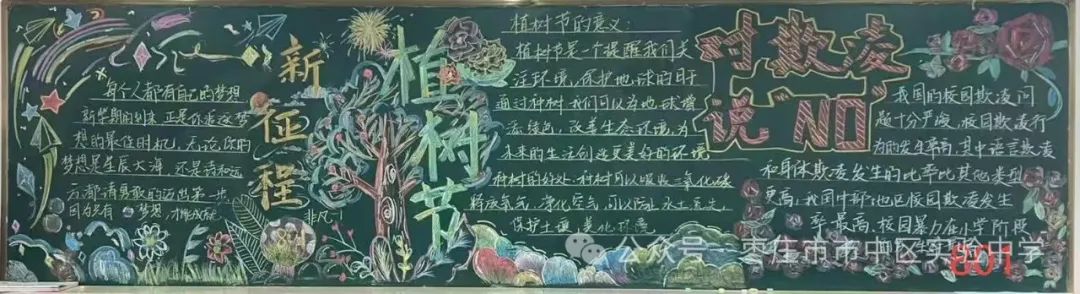 新征程
每个人都有自己的梦想
新学期的到来 正是你追逐梦
想的最佳时机，无论你的
梦想是星辰大海，还是诗和远
方都请勇敢的迈出第一步
因为只有 梦想，才能成就
非凡！
植树节
植树节的意义：
植树节是一个提醒我们关
注环境，保护地球的日子
通过种树 我们可以为地球增
添绿色，改善生态环境，为
未来的生活创造更美好的环境
种树的好处：种树可以吸收二氧化碳
释放氧气，净化空气，可以防止水土流失
保护土壤，美化环境
对欺凌
说"NO"
我国的校园欺凌问
题十分严峻，校园欺凌行
为的发生率高，其中语言欺凌
和身体欺凌发生的比率比其他类型
更高，我国中部地区校园欺凌发生
率最高，校园暴力在小学阶段
公众号 枣庄市市中区实验中学
801